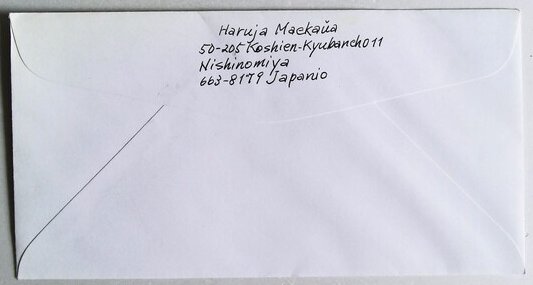 Haruja Maekaŭa
50-205 Koshien-Kyubancho 11
Nishinomiya
663-8179 Japanio